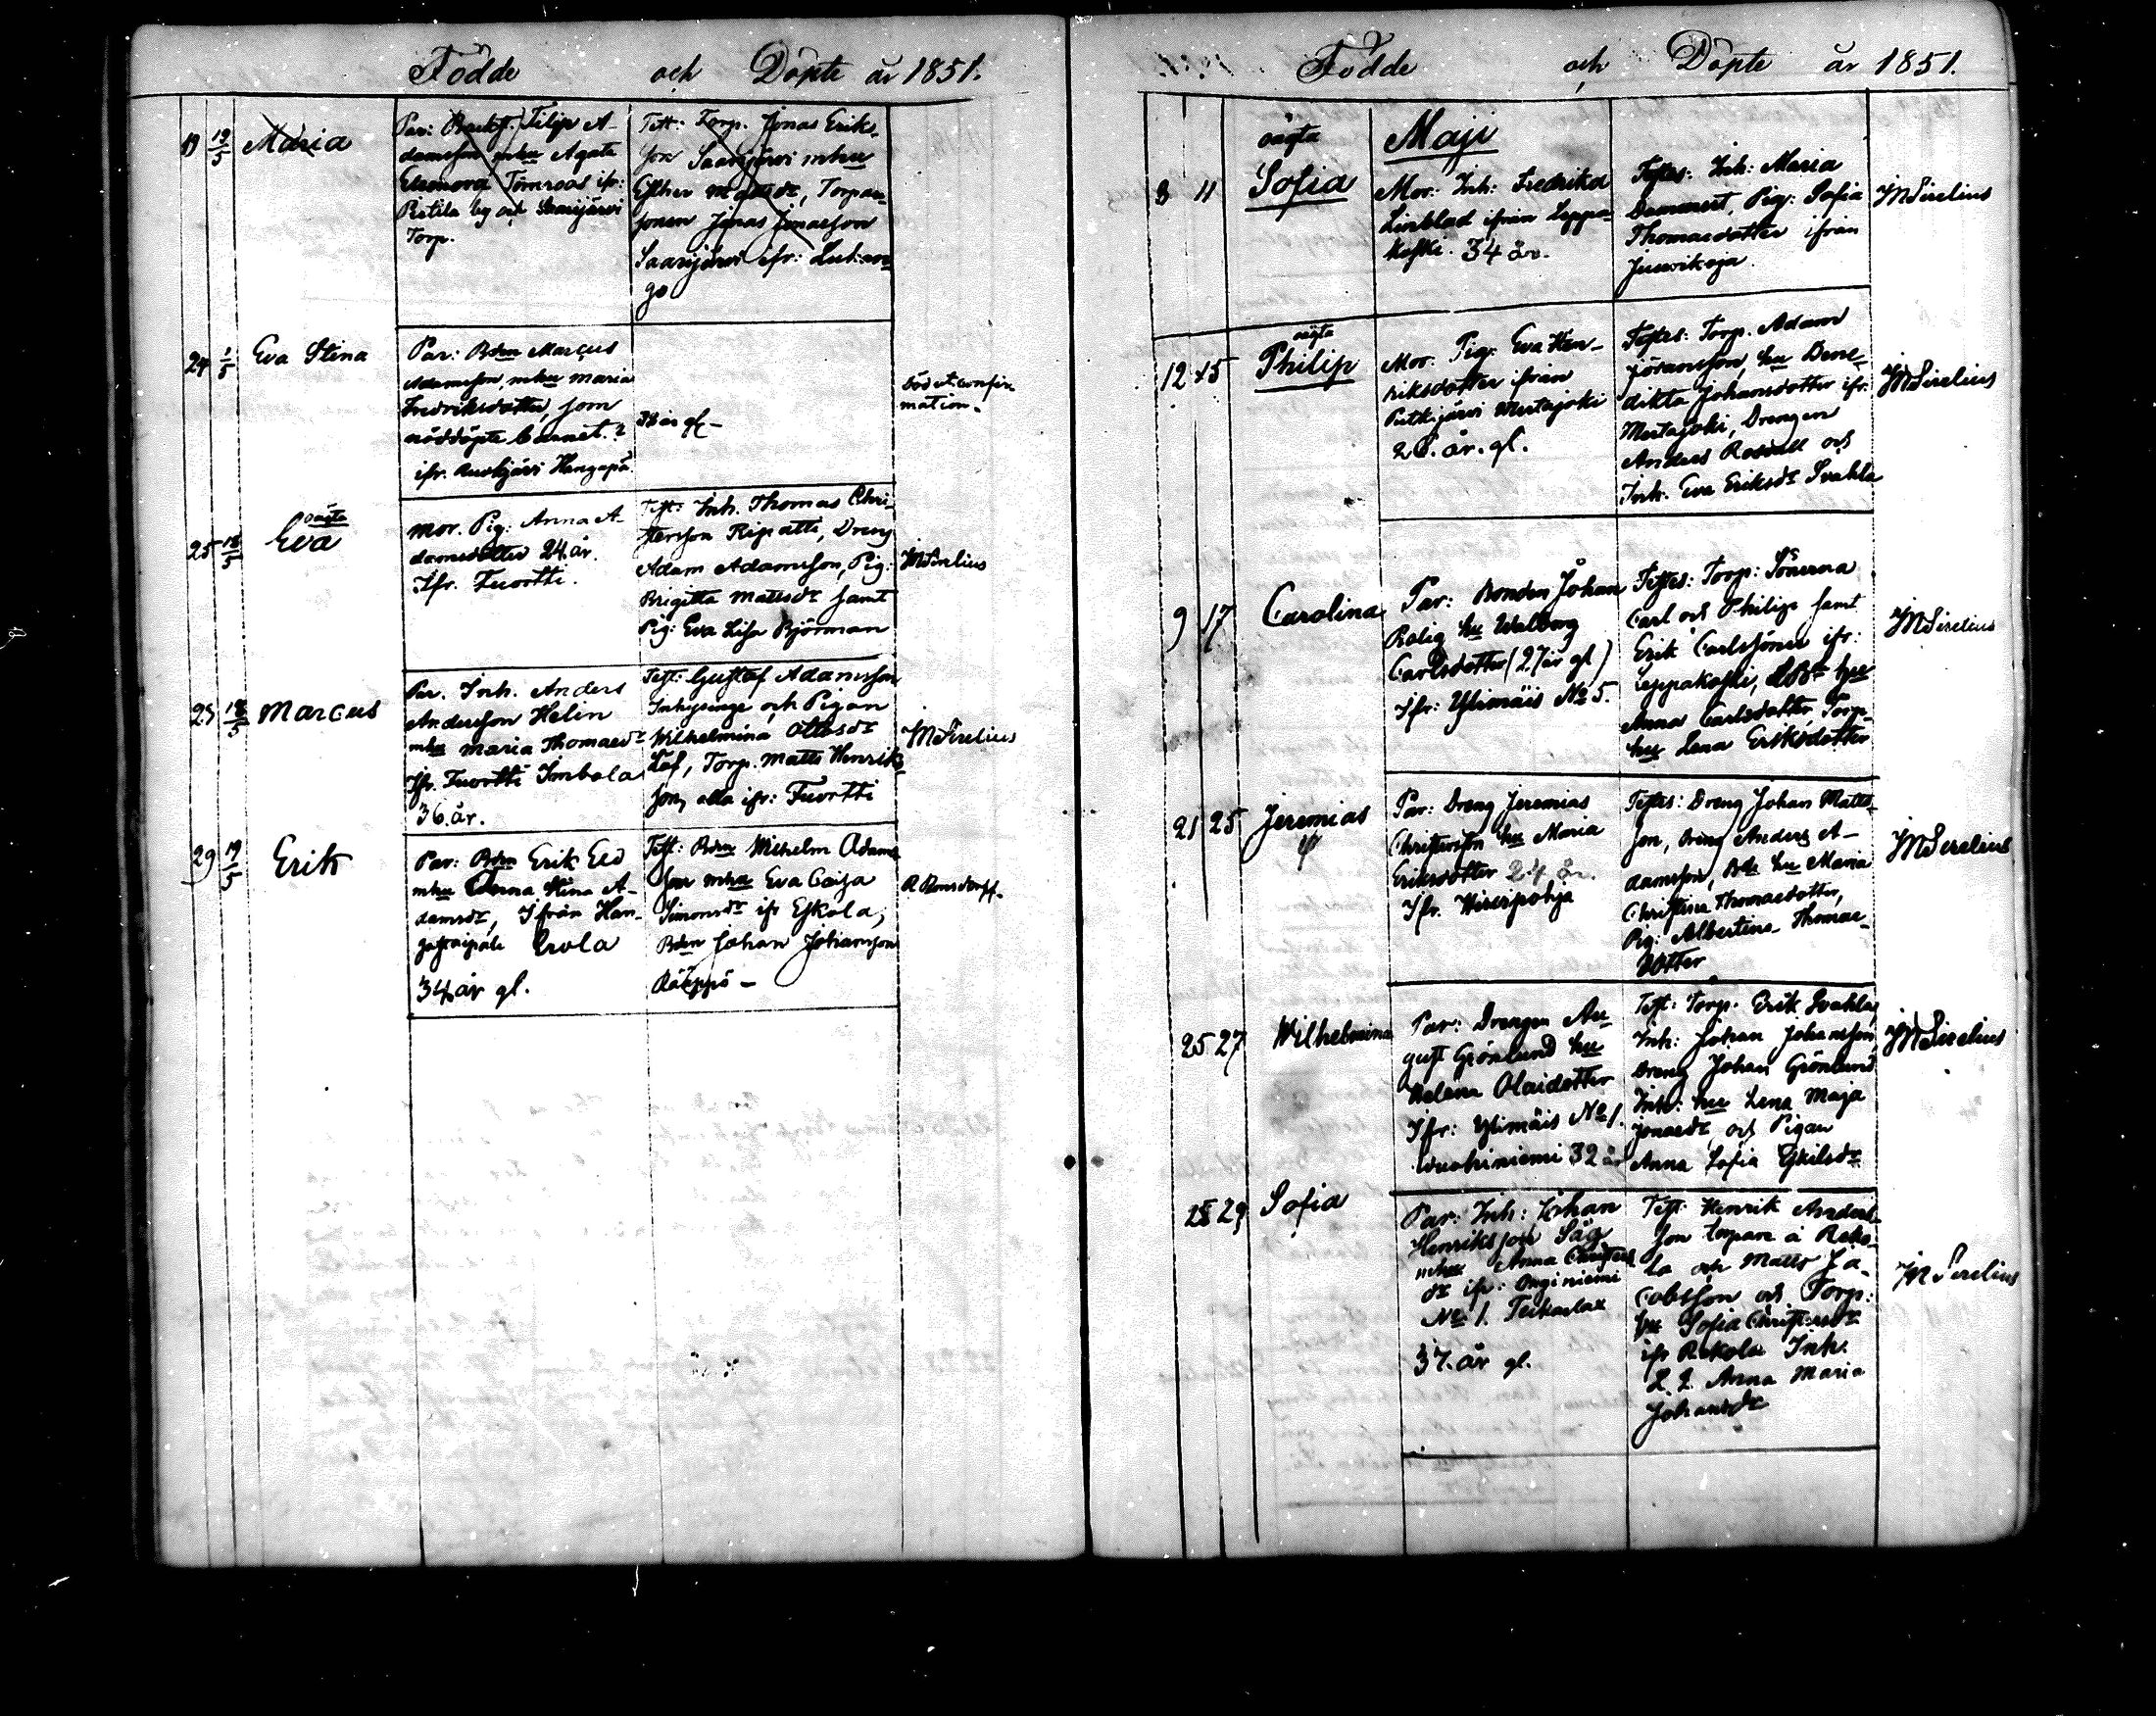 Födde och Döpte år 1851.
19 19/5 Maria
Par: Filip A-
damsson mhu Agata
Eleonora Törnroos ifr:
Pitila by och Saarijärvi
Torp.
Test: Torp. Jonas Eriks-
son Saarijärvi mhu
Esther Mattsdr, Torpare-
sonen Jonas Jonasson
Saarijärvi ifr:
24 1/5 Eva Stina
Par: Bdn Marcus
Adamsson, mhu Maria
Fredriksdotter, som
nöddöpte barnet.
ifr.
38 år gl-
död f. confir-
mation.
25 18/5 oägta
Eva
Mor. Pig: Anna A-
damsdotter 24. år.
Ifr. Tuortti.
Test: Inh. Thomas Chri-
stersson Ripatti, Dreng
Adam Adamsson, Pig:
Brigitta Mattsdr samt
Pig: Eva Lisa Björman
MSirelius
25 18/5 Marcus
Par. Inh. Anders
Andersson Helin
mhu Maria Thomasdr
Ifr. Tuortti Imbola
36. år.
Test: Gustaf Adamsson
Inhysinge och Pigan
Wilhelmina Ottosdr
Löf, Torp. Matts Henriks-
son, alla ifr: Tuortti
MSirelius
29 19/5 Erik
Par: Bdn Erik
mhu Anna Stina A-
damsdr, Ifrån Han-
gastaipale Erola
34 år gl.
Test: Bdn Wilhelm Adams-
son mhu Eva Caisa
Simonsdr ifr Eskola,
Bdn Johan Johansson
Räppö -
Födde och Döpte år 1851.
Maji
8 11 oägta
Sofia
Mor: Inh: Fredrika
Linblad ifrån Leppä-
koski. 34 år.
Testes: Inh: Maria
Dammert, Pig: Sofia
Thomasdotter ifrån
MSirelius
12 15 oägta
Philip
Mor. Pig: Eva Hen-
riksdotter ifrån
Putkijärvi Mertajoki
år. gl.
Testes: Torp. Adam
Jöransson, hu Bene-
dikta Johansdotter ifr.
Mertajoki, Drengen
Anders Rosvall och
Inh. Eva Eriksdr Svahla
MSirelius
9 17 Carolina
Par: Bonden Johan
Rolig hu Walborg
Carlsdotter (27 år gl)
Ifr: Ylimäis No 5.
Testes: Torp: Sönerna
Carl och Philip samt
Erik Carlssöner ifr:
Leppäkoski, hu
Anna Carlsdotter, Torp-
hu Lena Eriksdotter
MSirelius
21 25 Jeremias
Par: Dreng Jeremias
Christersson hu Maria
Eriksdotter 24 år.
Ifr. Wiseripohja
Testes: Dreng Johan Matts-
son, Dreng Anders A-
damsson, Bd. hu Maria
Christina Thomasdotter,
Pig: Albertina Thomas-
dotter
MSirelius
25 27 Wilhelmina
Par: Drengen Au-
gust Grönlund hu
Helena Olaidotter
Ifr: Ylimäis No 1.
Vuohiniemi 32 år
Test: Torp. Erik Svahla,
Inh: Johan Johansson,
Dreng Johan Grönlund
Inh: hu Lena Maja
Jonasdr, och Pigan
Anna Sofia Eskilsdr
MSirelius
25 29 Sofia
Par: Inh: Johan
Henriksson Säg
mhu Anna
dr ifr: Onginiemi
No 1. Teikarlax
37. år gl.
Test: Henrik Anders-
son torpare å Reko-
la och Matts Ja-
cobsson och Torp:
hu Sofia Christersdr
ifr Rekola Inh.
Anna Maria
Johansdr
MSirelius